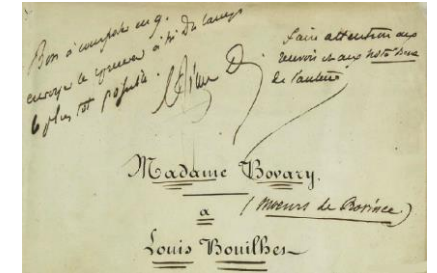 Bon à composer en 9.
envoyer les épreuves à Mr Du Camp
le plus tôt possible.
faire attention aux
renvois et aux
de l'auteur
Madame Bovary.
(Mœurs de Province)
a
Louis Bouilhet